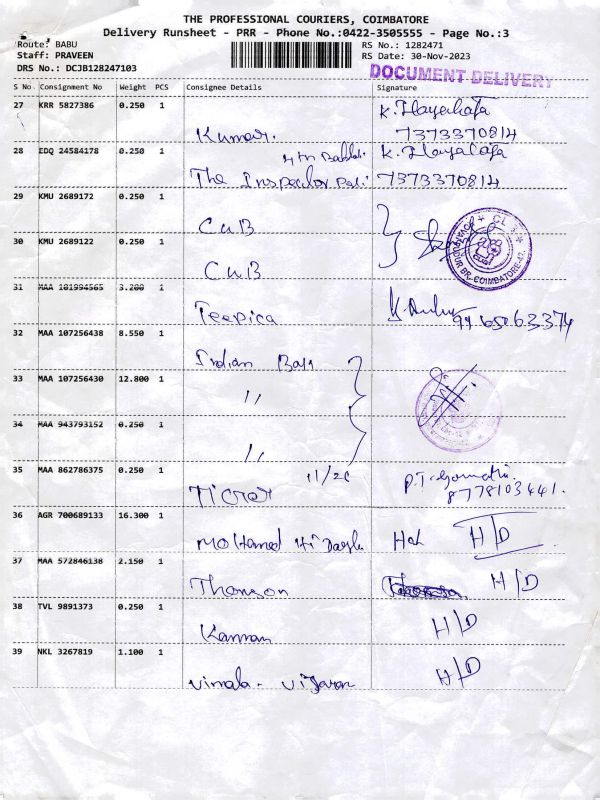 THE PROFESSIONAL COURIERS, COIMBATORE
Delivery Runsheet - PRR - Phone No.:0422-3505555 - Page No.:3
Route: BABU RS No.: 1282471
Staff: PRAVEEN RS Date: 30-Nov-2023
DRS No.: DCJB128247103
DOCUMENT DELIVERY
S No Consignment No Weight PCS Consignee Details Signature
27 KRR 5827386 0.250 1
Kumar. 7373370814
28 EDQ 24584178 0.250 1
The Inspector 7373370814
29 KMU 2689172 0.250 1
CUB
30 KMU 2689122 0.250 1
CUB
31 MAA 101994565 3.200 1
Teepica
32 MAA 107256438 8.550 1
Indian
33 MAA 107256430 12.800 1
"
34 MAA 943793152 0.250 1
"
35 MAA 862786375 0.250 1
8778103441.
36 AGR 700689133 16.300 1
Mohamed H/D
37 MAA 572846138 2.150 1
Thomson H/D
38 TVL 9891373 0.250 1
Kannan H/D
39 NKL 3267819 1.100 1
Vimala - H/D